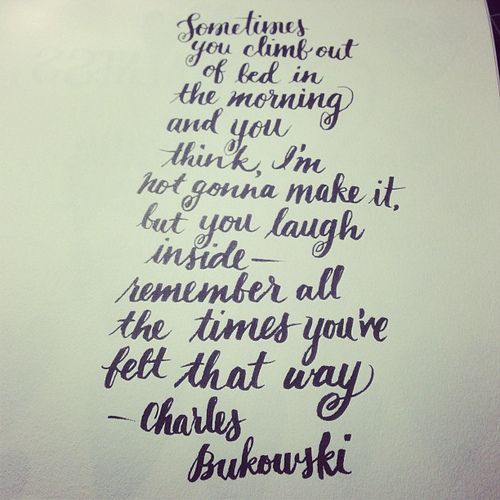 Sometimes
you climb out
of bed in
the morning
and you
think, I'm
not gonna make it,
but you laugh
inside—
remember all
the times you've
felt that way
—Charles
Bukowski